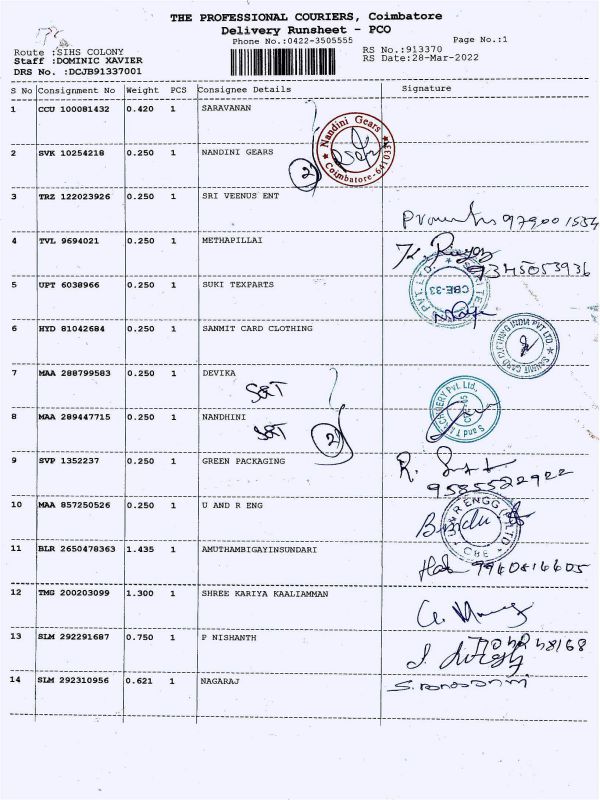 THE PROFESSIONAL COURIERS, Coimbatore
Delivery Runsheet - PCO
Phone No.:0422-3505555 Page No.:1
Route :SIHS COLONY RS No.:913370
Staff :DOMINIC XAVIER RS Date:28-Mar-2022
DRS No. :DCJB91337001
S No Consignment No Weight PCS Consignee Details Signature
1 CCU 100081432 0.420 1 SARAVANAN
Nandini Gears
Coimbatore-641033
2 SVK 10254218 0.250 1 NANDINI GEARS
2
3 TRZ 122023926 0.250 1 SRI VEENUS ENT
4 TVL 9694021 0.250 1 METHAPILLAI
9345053936
5 UPT 6038966 0.250 1 SUKI TEXPARTS
CBE-33
6 HYD 81042684 0.250 1 SANMIT CARD CLOTHING
SANMIT CARD CLOTHING INDIA PVT LTD
7 MAA 288799583 0.250 1 DEVIKA
S&T
8 MAA 289447715 0.250 1 NANDHINI
S&T 2
9 SVP 1352237 0.250 1 GREEN PACKAGING
9585522922
10 MAA 857250526 0.250 1 U AND R ENG
CBE
11 BLR 2650478363 1.435 1 AMUTHAMBIGAYINSUNDARI
12 TMG 200203099 1.300 1 SHREE KARIYA KAALIAMMAN
13 SLM 292291687 0.750 1 P NISHANTH
14 SLM 292310956 0.621 1 NAGARAJ